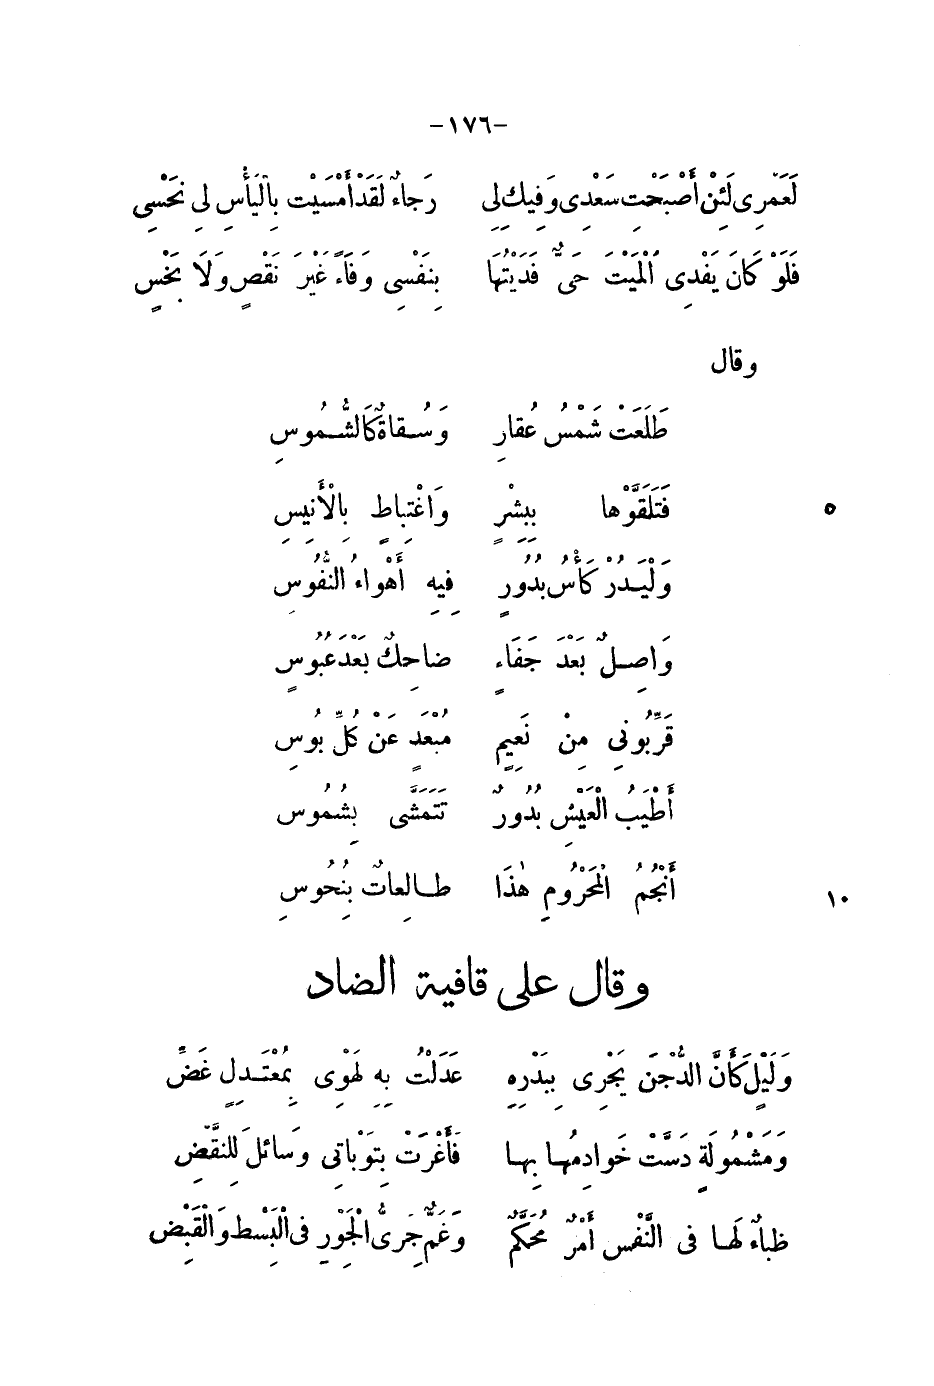 -١٧٦-
لَعَمْرِى لَئِنْ أَصْبَحْتِ سَعْدِى وَفِيكِ لِى رَجاءٌ لَقَدْ أَمْسَيْتِ بِالْيَأْسِ لِى نَحْسِى
فَلَوْ كَانَ يَفْدِى ٱلْمَيْتَ حَىٌّ فَدَيْتُهَا بِنَفْسِى وَفَاءً غَيْرَ نَقْصٍ وَلَا بَخْسِ
وقال
طَلَعَتْ شَمْسُ عُقارِ وَسُقاةٌ كَالشُّمُوسِ
فَتَلَقَّوْها بِبِشْرٍ وَاغْتِباطٍ بِالْأَنِيسِ
٥
وَلْيَدُرْ كَأْسُ بُدُورٍ فِيهِ أَهْواءُ النُّفُوسِ
وَاصِلٌ بَعْدَ جَفَاءٍ ضاحِكٌ بَعْدَ عُبُوسٍ
قَرِّبُونِى مِنْ نَعِيمٍ مُبْعَدٍ عَنْ كُلِّ بُوسِ
أَطْيَبُ الْعَيْشِ بُدُورٌ تَتَمَشَّى بِشُمُوس
أَنْجُمُ الْمَحْرُومِ هٰذَا طالِعاتٌ بِنُحُوسِ
١٠
وقال على قافية الضاد
وَلَيْلٍ كَأَنَّ الدُّجْنَ يَجْرِى بِبَدْرِهِ عَدَلْتُ بِهِ لَهْوِى بِمُعْتَدِلٍ غَضِّ
وَمَشْمُولَةٍ دَسَّتْ خَوادِمُها بِها فَأَغْرَتْ بِتَوْباتِى وَسائلَ لِلنَّقْضِ
ظباءٌ لَها فى النَّفْسِ أَمْرٌ مُحَكَّمٌ وَغَمٌّ جَرِىُّ الْجَوْرِ فى الْبَسْطِ وَالْقَبْضِ